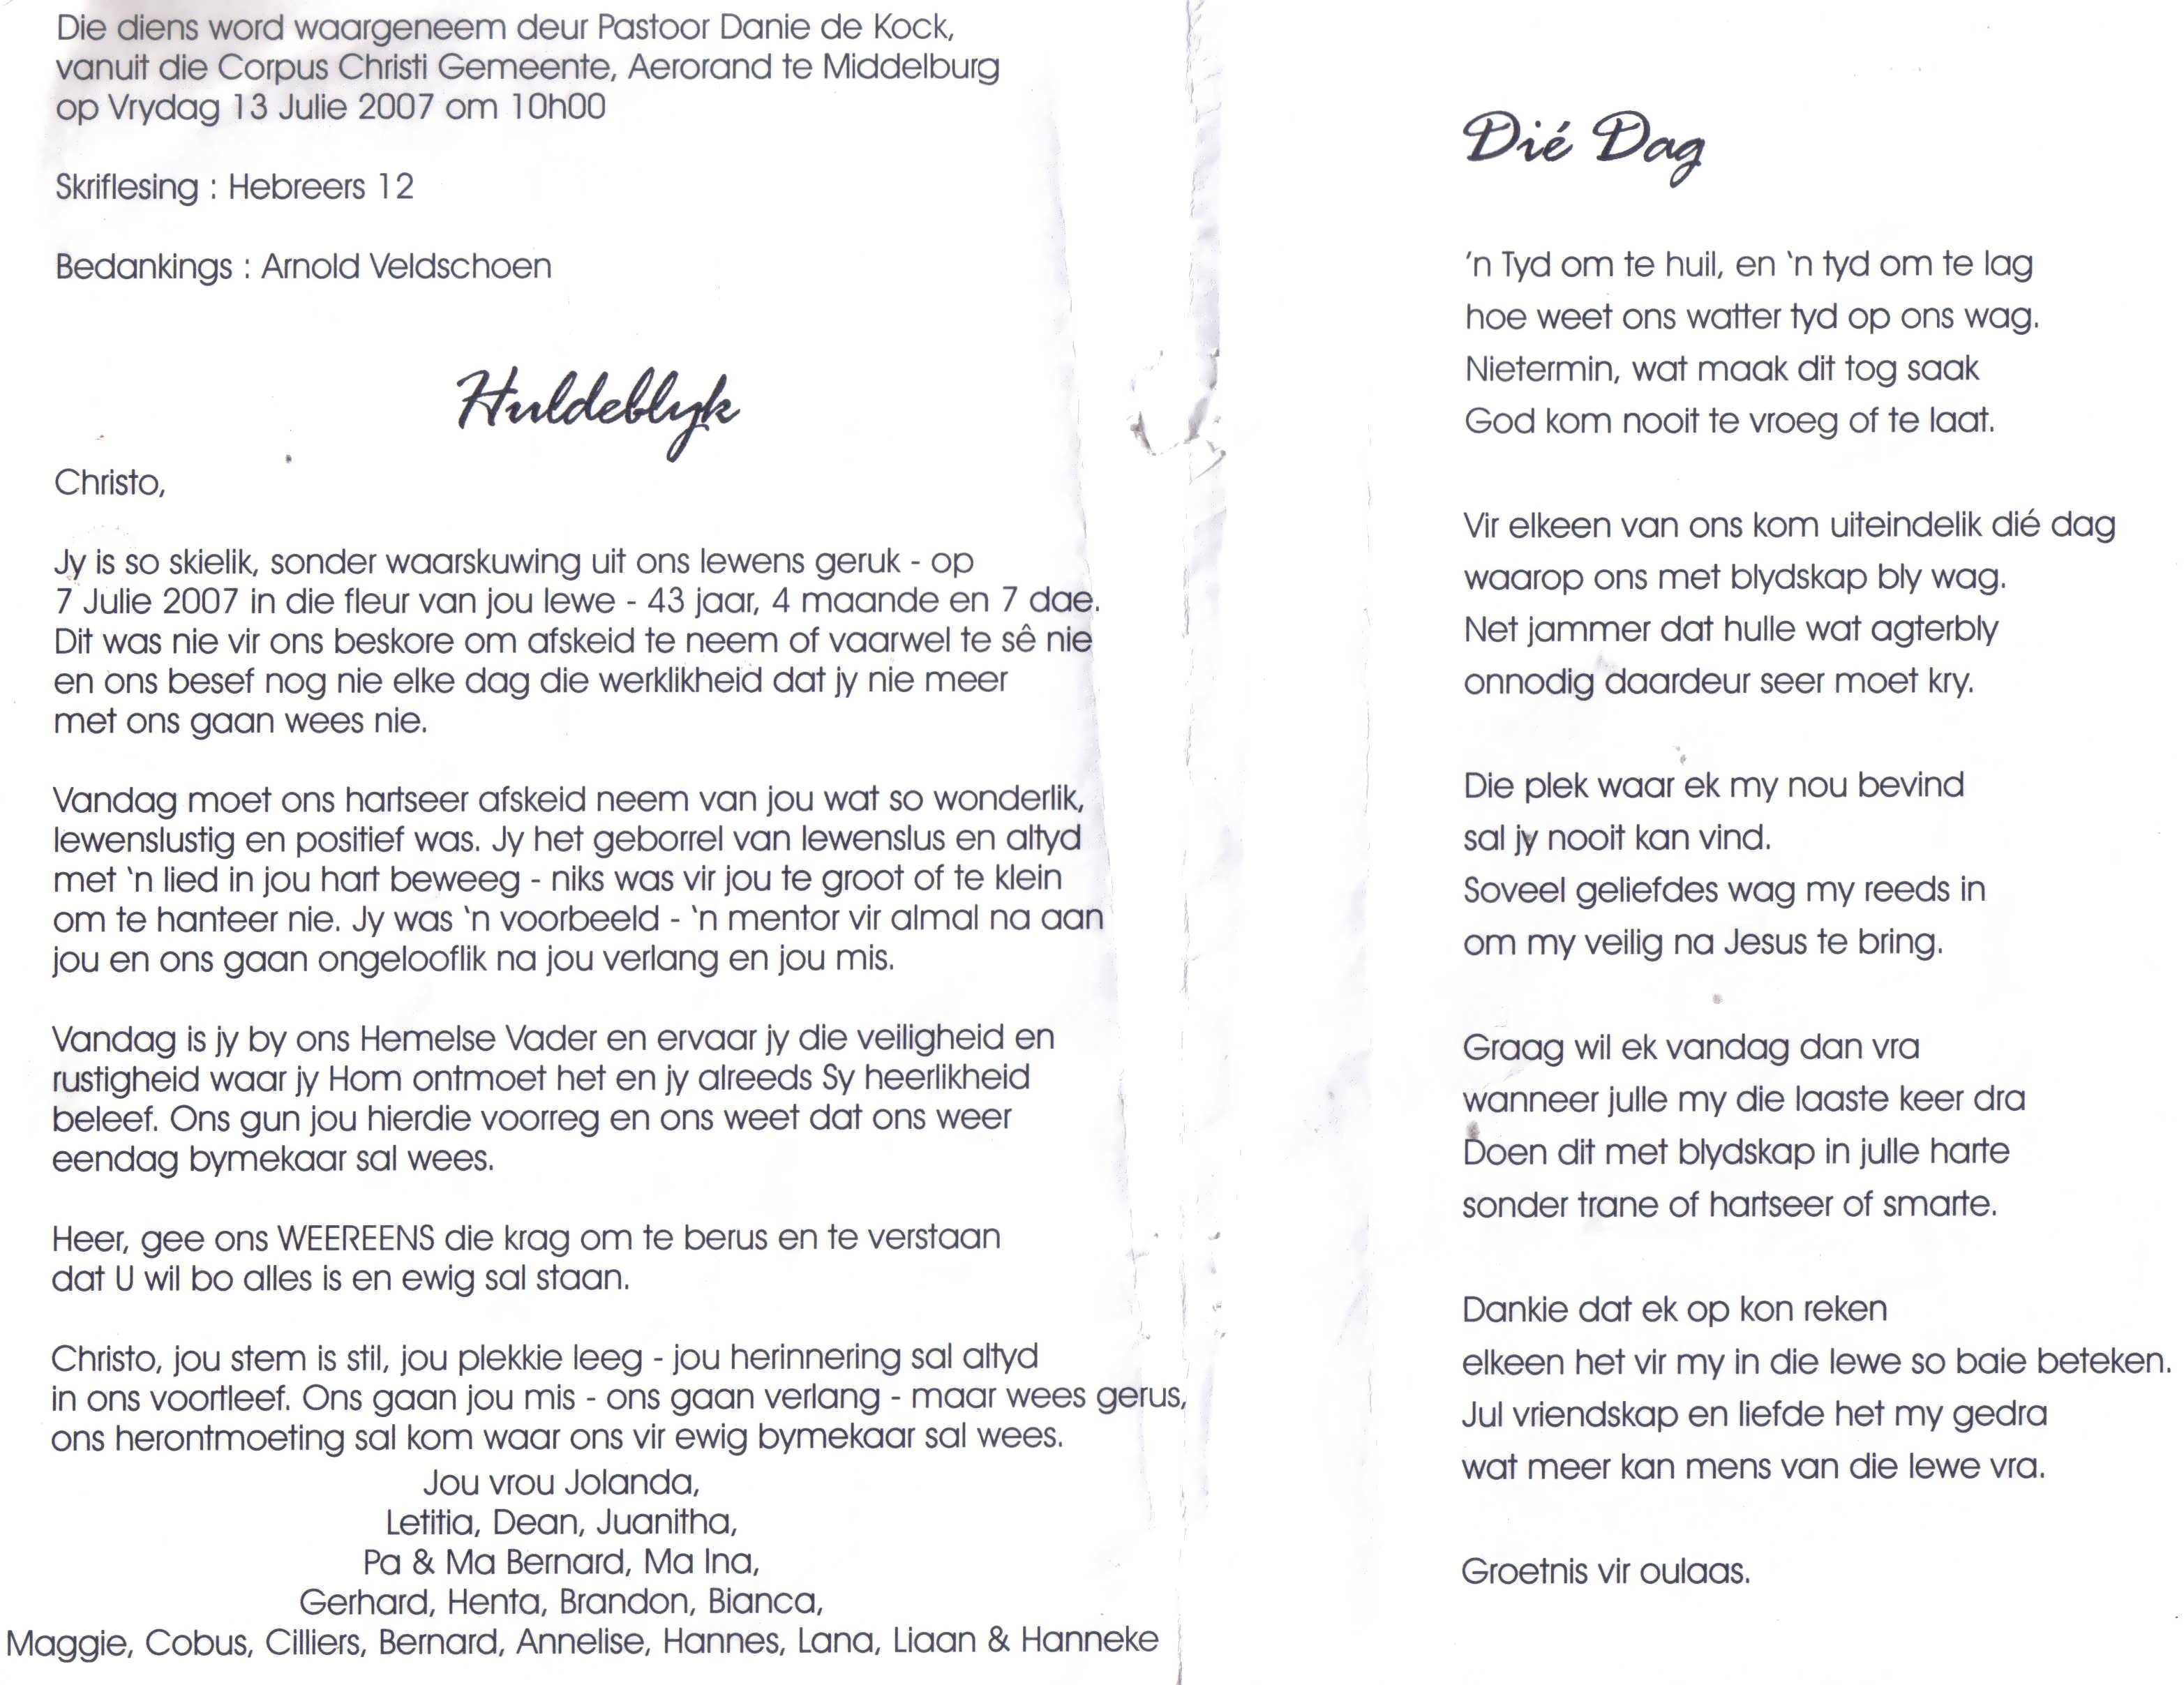 Die diens word waargeneem deur Pastoor Danie de Kock,
vanuit die Corpus Christi Gemeente, Aerorand te Middelburg
op Vrydag 13 Julie 2007 om 10h00
Skriflesing : Hebreers 12
Bedankings : Arnold Veldschoen
Huldeblyk
Christo,
Jy is so skielik, sonder waarskuwing uit ons lewens geruk - op
7 Julie 2007 in die fleur van jou lewe - 43 jaar, 4 maande en 7 dae.
Dit was nie vir ons beskore om afskeid te neem of vaarwel te sê nie
en ons besef nog nie elke dag die werklikheid dat jy nie meer
met ons gaan wees nie.
Vandag moet ons hartseer afskeid neem van jou wat so wonderlik,
lewenslustig en positief was. Jy het geborrel van lewenslus en altyd
met 'n lied in jou hart beweeg - niks was vir jou te groot of te klein
om te hanteer nie. Jy was 'n voorbeeld - 'n mentor vir almal na aan
jou en ons gaan ongelooflik na jou verlang en jou mis.
Vandag is jy by ons Hemelse Vader en ervaar jy die veiligheid en
rustigheid waar jy Hom ontmoet het en jy alreeds Sy heerlikheid
beleef. Ons gun jou hierdie voorreg en ons weet dat ons weer
eendag bymekaar sal wees.
Heer, gee ons WEEREENS die krag om te berus en te verstaan
dat U wil bo alles is en ewig sal staan.
Christo, jou stem is stil, jou plekkie leeg - jou herinnering sal altyd
in ons voortleef. Ons gaan jou mis - ons gaan verlang - maar wees gerus,
ons herontmoeting sal kom waar ons vir ewig bymekaar sal wees.
Jou vrou Jolanda,
Letitia, Dean, Juanitha,
Pa & Ma Bernard, Ma Ina,
Gerhard, Henta, Brandon, Bianca,
Maggie, Cobus, Cilliers, Bernard, Annelise, Hannes, Lana, Liaan & Hanneke
Dié Dag
'n Tyd om te huil, en 'n tyd om te lag
hoe weet ons watter tyd op ons wag.
Nietermin, wat maak dit tog saak
God kom nooit te vroeg of te laat.
Vir elkeen van ons kom uiteindelik dié dag
waarop ons met blydskap bly wag.
Net jammer dat hulle wat agterbly
onnodig daardeur seer moet kry.
Die plek waar ek my nou bevind
sal jy nooit kan vind.
Soveel geliefdes wag my reeds in
om my veilig na Jesus te bring.
Graag wil ek vandag dan vra
wanneer julle my die laaste keer dra
Doen dit met blydskap in julle harte
sonder trane of hartseer of smarte.
Dankie dat ek op kon reken
elkeen het vir my in die lewe so baie beteken.
Jul vriendskap en liefde het my gedra
wat meer kan mens van die lewe vra.
Groetnis vir oulaas.